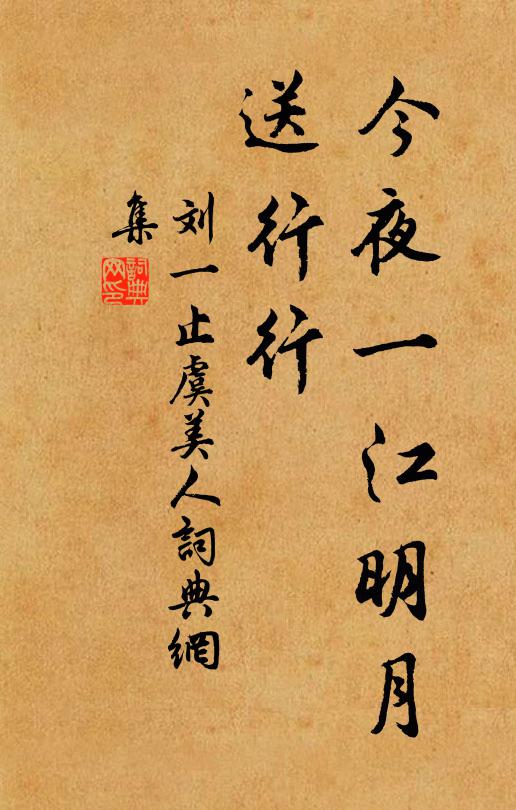 今夜一江明月
送行行
刘一止虞美人詞典網
集
詞典
网印